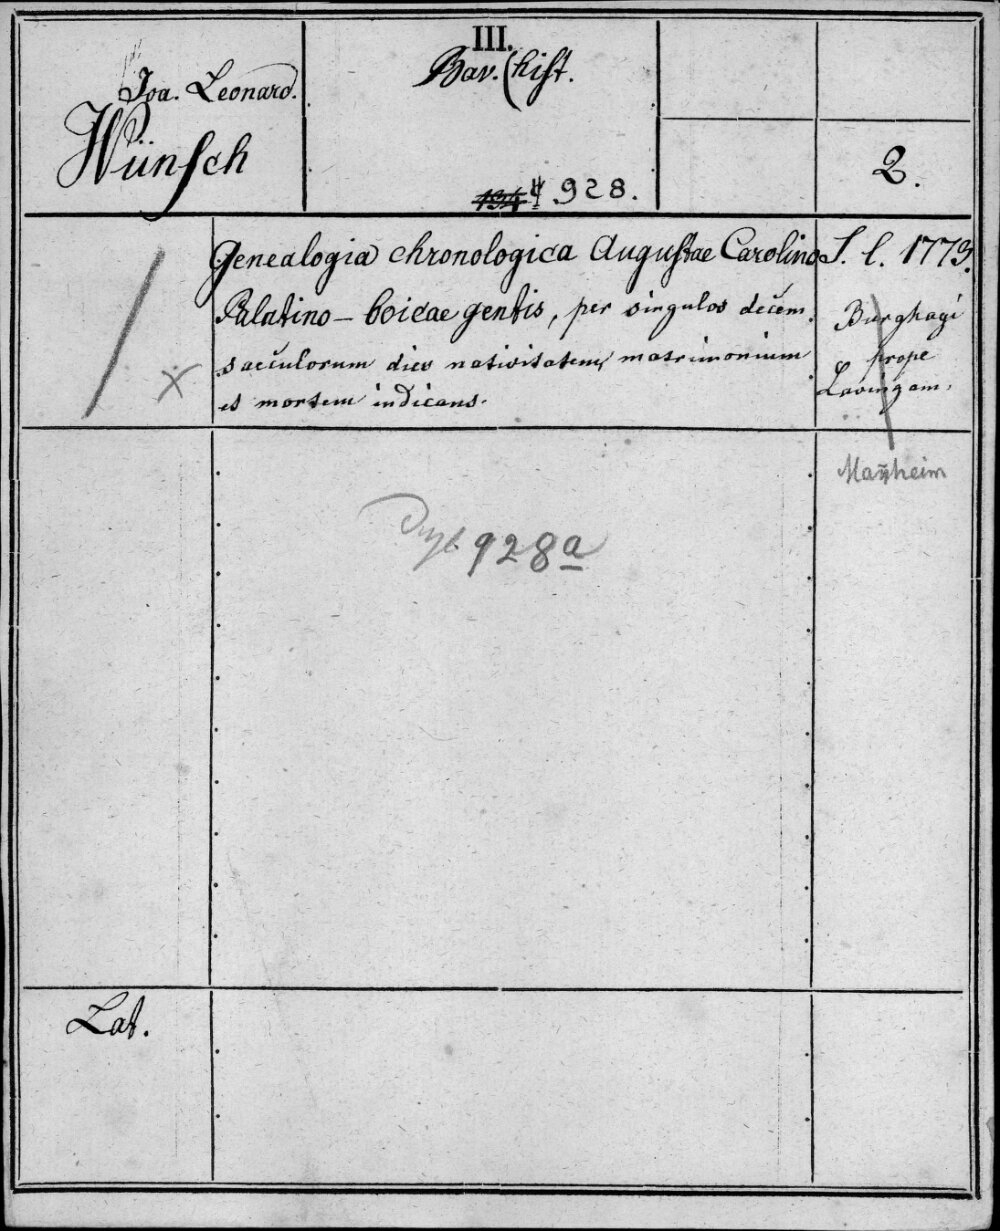 Joa. Leonard.
Wünsch
III.
Bav. (hist.
4 928.
2.
Genealogia chronologica Augustae Carolino
Palatino-boicae gentis, per singulos decem
saeculorum dies nativitatem, matrimonium
et mortem indicans.
S. l. 1773.
Burghagi
prope
Lavingam.
Man̄heim
928a
Lat.